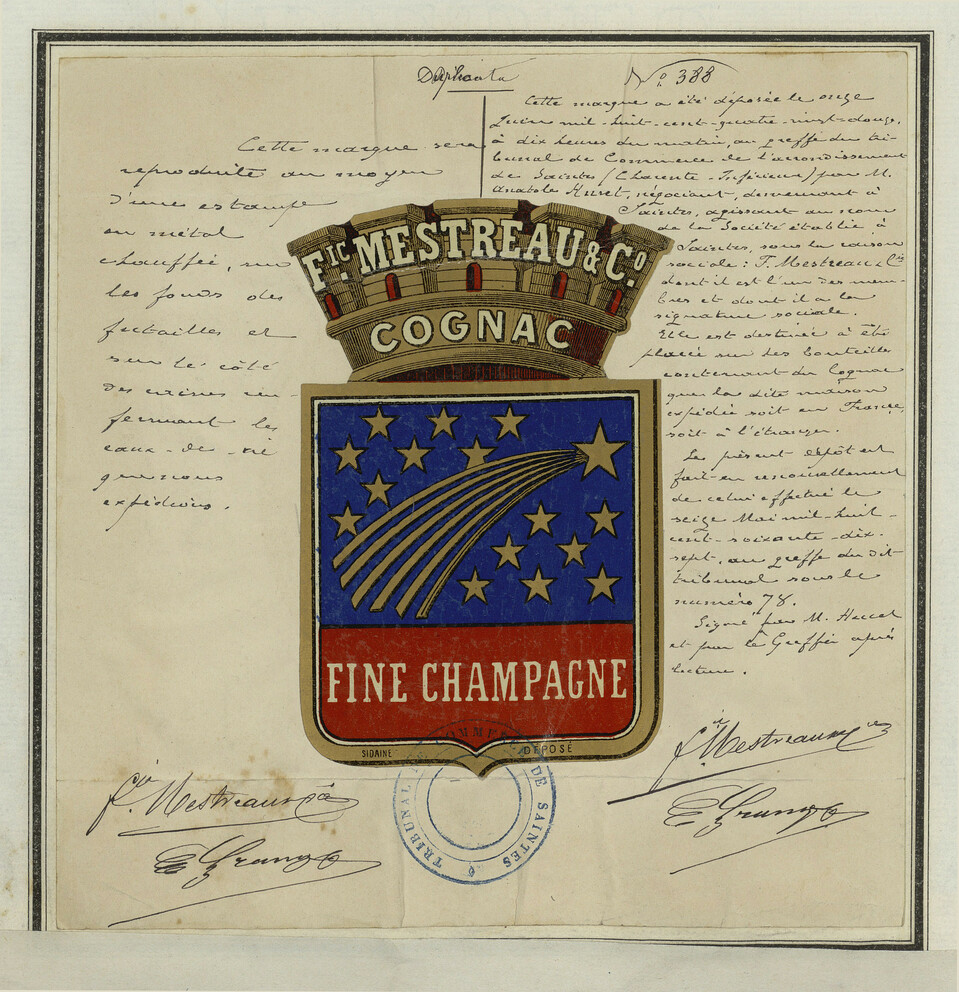 Duplicata
N° 388
Cette marque sera
reproduite au moyen
d'une estampe
en métal
chauffée, sur
les fonds des
futailles et
sur le côté
des caisses ren-
fermant les
eaux-de-vie
que nous
expédions.
Cette marque a été déposée le onze
Juin mil-huit-cent-quatre-vingt-douze,
à dix heures du matin, au greffe du tri-
bunal de Commerce de l'arrondissement
de Saintes (Charente-Inférieure) par M.
Anatole Huvet, négociant, demeurant à
Saintes, agissant au nom
de la Société établie à
Saintes, sous la raison
sociale: F. Mestreau & Cie
dont il est l'un des mem-
bres et dont il a la
signature sociale.
Elle est destinée à être
placée sur des bouteilles
contenant du Cognac
que la dite maison
expédie soit en France,
soit à l'étranger.
Le présent dépôt est
fait en renouvellement
de celui effectué le
seize Mai mil-huit-
cent-soixante-dix-
sept, au greffe du dit
tribunal sous le
numéro 78.
Signé par M. Huvet
et par le Greffier après
lecture.
Fic. MESTREAU & Co.
COGNAC
FINE CHAMPAGNE
SIDAINE
DÉPOSÉ
TRIBUNAL DE COMMERCE DE SAINTES
Fic Mestreau & Cie
Fic Mestreau & Cie